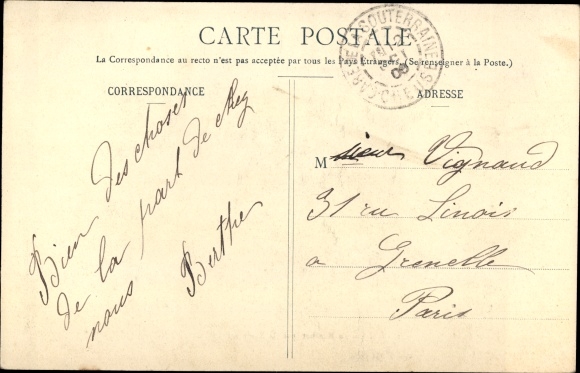 CARTE POSTALE
La Correspondance au recto n'est pas acceptée par tous les Pays Étrangers. (Se renseigner à la Poste.)
CORRESPONDANCE
Bien des choses
de la part de chez
nous Berthe
ADRESSE
M Vignaud
31 ru Linois
a Grenelle
Paris
LA SOUTERRAINE
09